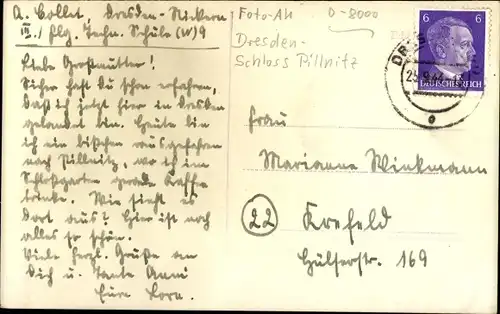 A. Collet. Dresden-Nickern
III./ Flg. Techn. Schule (W) 9
Liebe Großmutter!
Sicher hast Du schon erfahren,
daß ich jetzt hier in Dresden
gelandet bin. Heute bin
ich ein bißchen rausgefahren
nach Pillnitz, wo ich im
Schloßgarten gerade Kaffee
trinke. Wie sieht es
dort aus? Hier ist noch
alles so schön.
Viele herzl. Grüße an
Dich u. Tante Anni
Eure Lore.
Foto-AK D-8000
Dresden-
Schloss Pillnitz
6 6
DEUTSCHES REICH
Frau
Marianne Winkmann
22 Krefeld
Hülserstr. 169